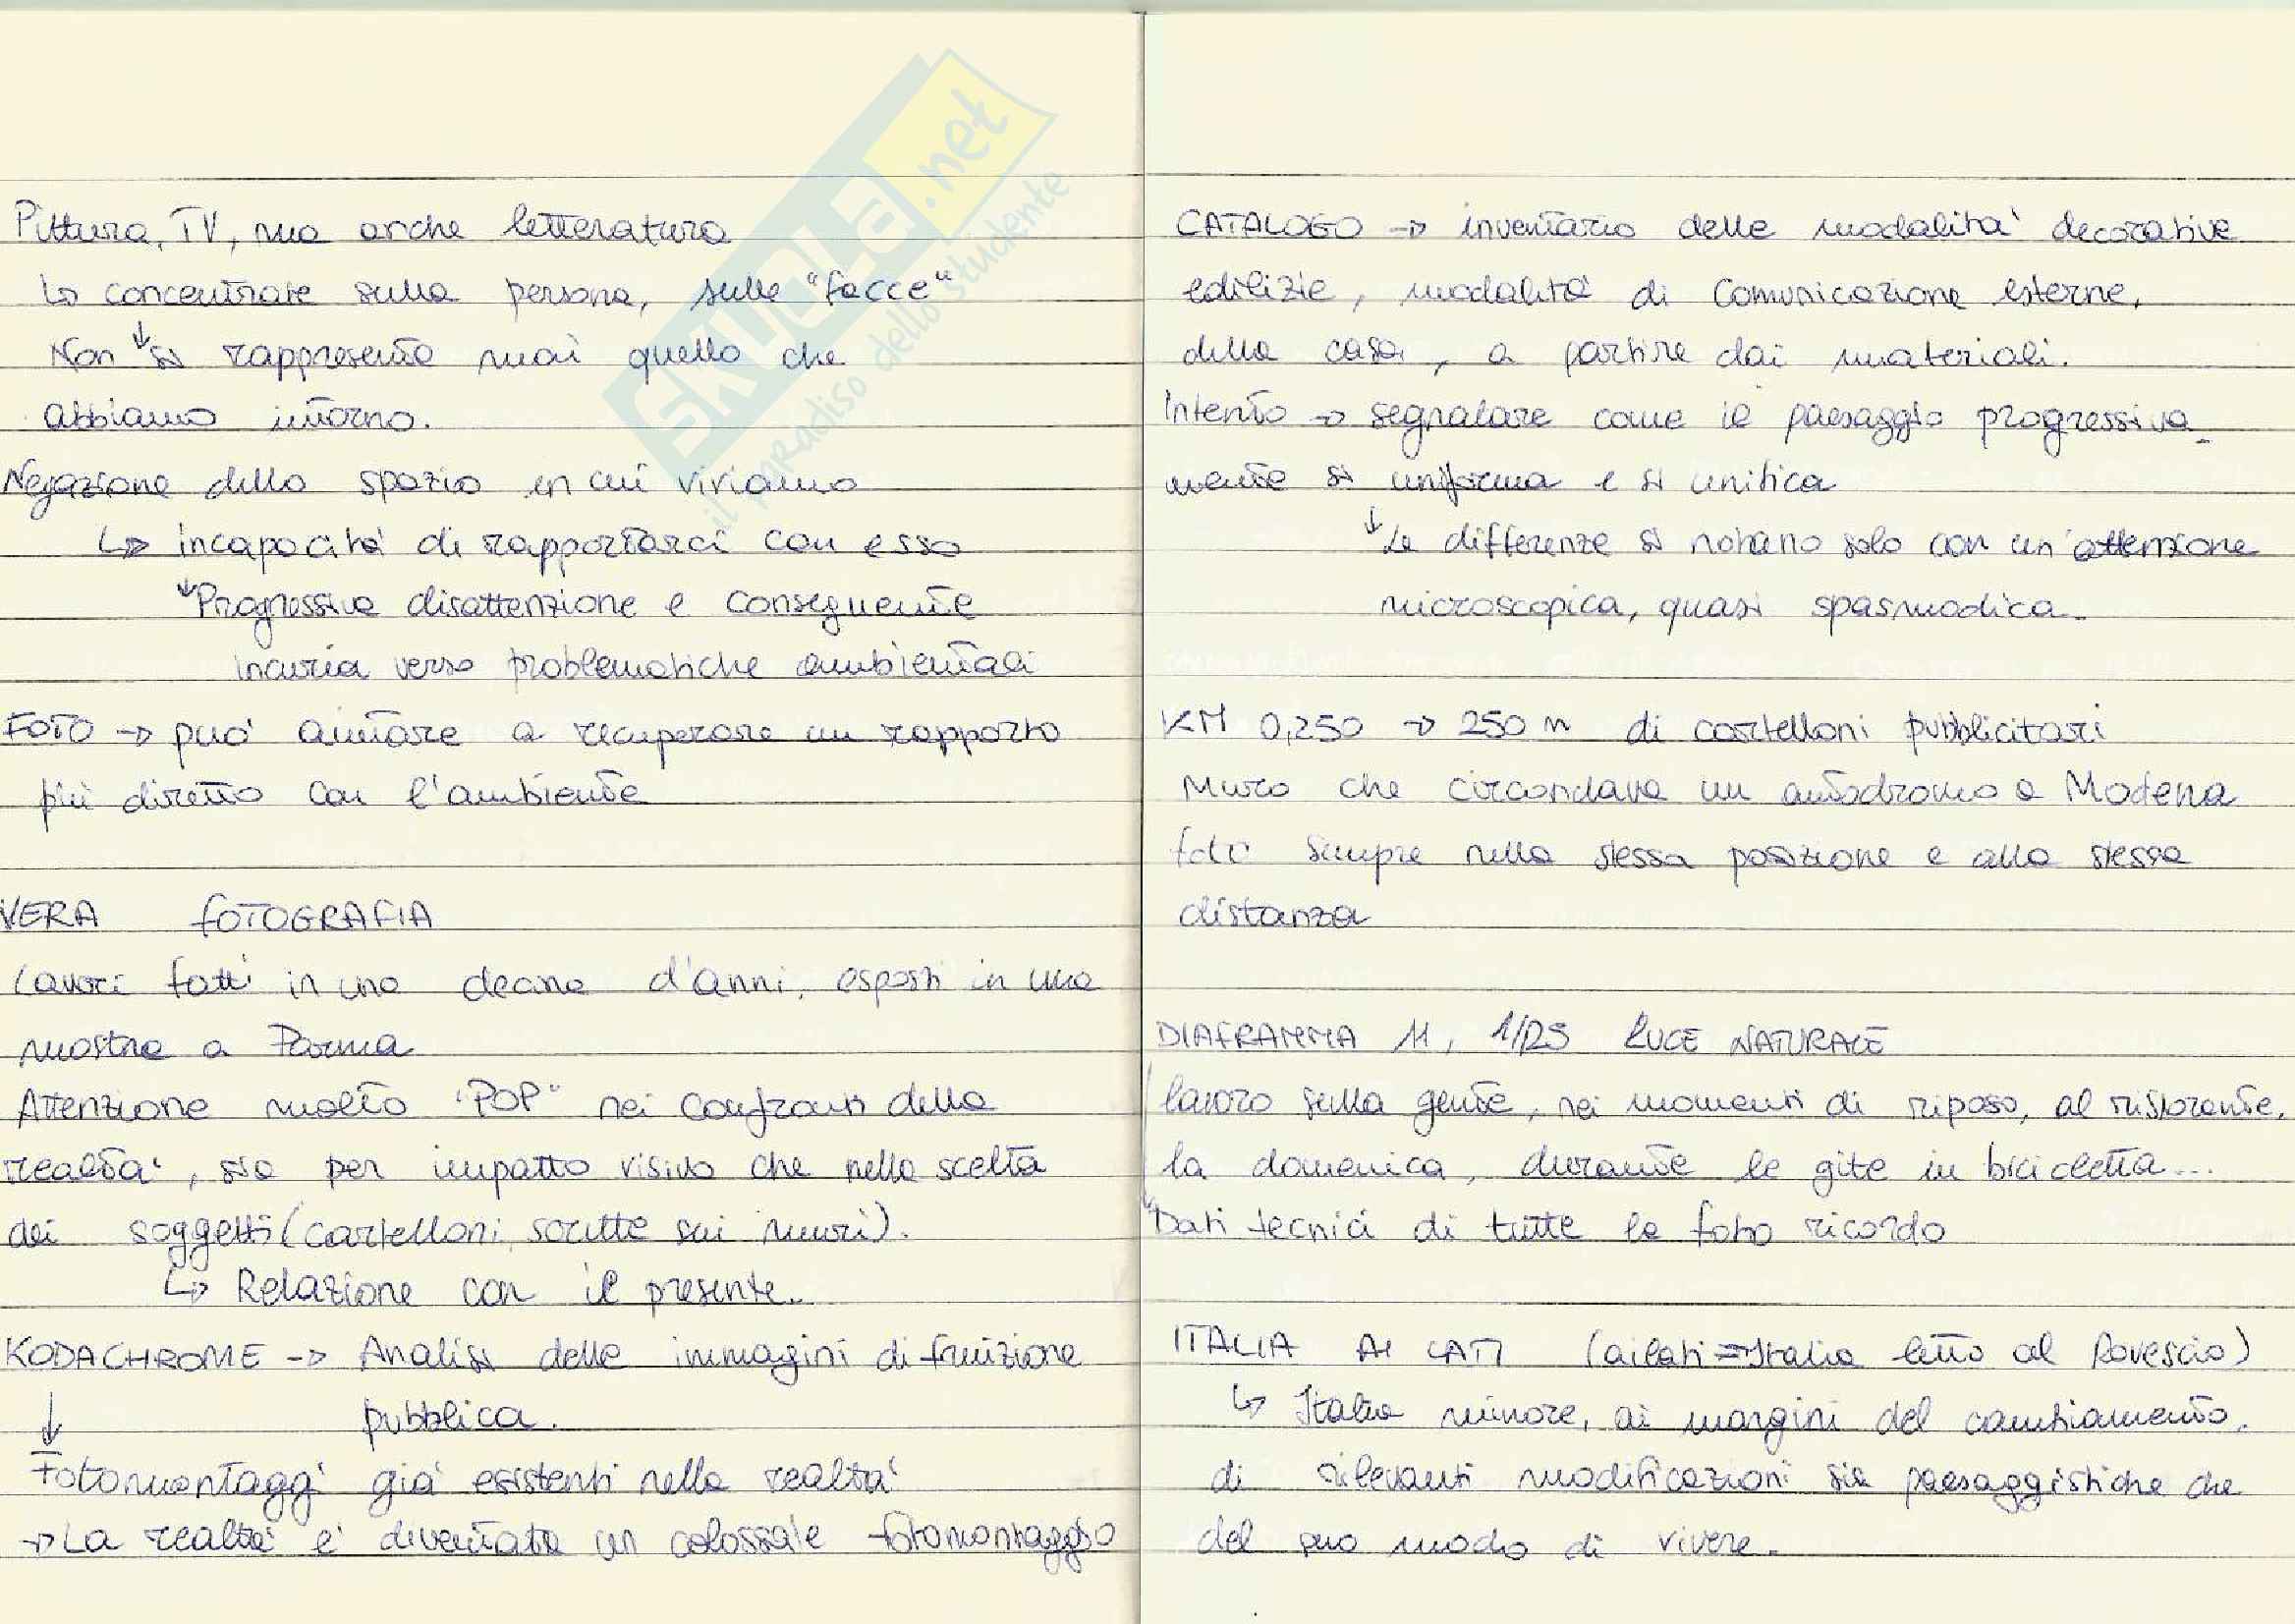 Pittura, TV, ma anche letteratura
↳ concentrate sulla persona, sulle "facce"
↓
Non si rappresenta mai quello che
abbiamo intorno.
Negazione dello spazio in cui viviamo
↳ incapacità di rapportarci con esso
↓ Progressiva disattenzione e conseguente
incuria verso problematiche ambientali
FOTO → può aiutare a recuperare un rapporto
più diretto con l'ambiente
VERA FOTOGRAFIA
Lavori fatti in una decina d'anni, esposti in una
mostra a Parma
Attenzione molto "POP" nei confronti della
realtà, sia per impatto visivo che nella scelta
dei soggetti (cartelloni, scritte sui muri).
↳ Relazione con il presente.
KODACHROME → Analisi delle immagini di fruizione
↓ pubblica.
Fotomontaggi già esistenti nella realtà
→ La realtà è diventata un colossale fotomontaggio
CATALOGO → inventario delle modalità decorative
edilizie, modalità di comunicazione esterne,
della casa, a partire dai materiali.
Intento → segnalare come il paesaggio progressiva-
mente si uniforma e si unifica
↓ Le differenze si notano solo con un'attenzione
microscopica, quasi spasmodica.
KM 0,250 → 250 m di cartelloni pubblicitari
Muro che circondava un autodromo a Modena
foto sempre nella stessa posizione e alla stessa
distanza
DIAFRAMMA 11, 1/125 LUCE NATURALE
lavoro sulla gente, nei momenti di riposo, al ristorante,
la domenica, durante le gite in bicicletta...
Dati tecnici di tutte le foto ricordo
ITALIA AI LATI (ailati = Italia letto al rovescio)
↳ Italia minore, ai margini del cambiamento,
di rilevanti modificazioni sia paesaggistiche che
del suo modo di vivere.
SKUOLA.net
il paradiso dello studente